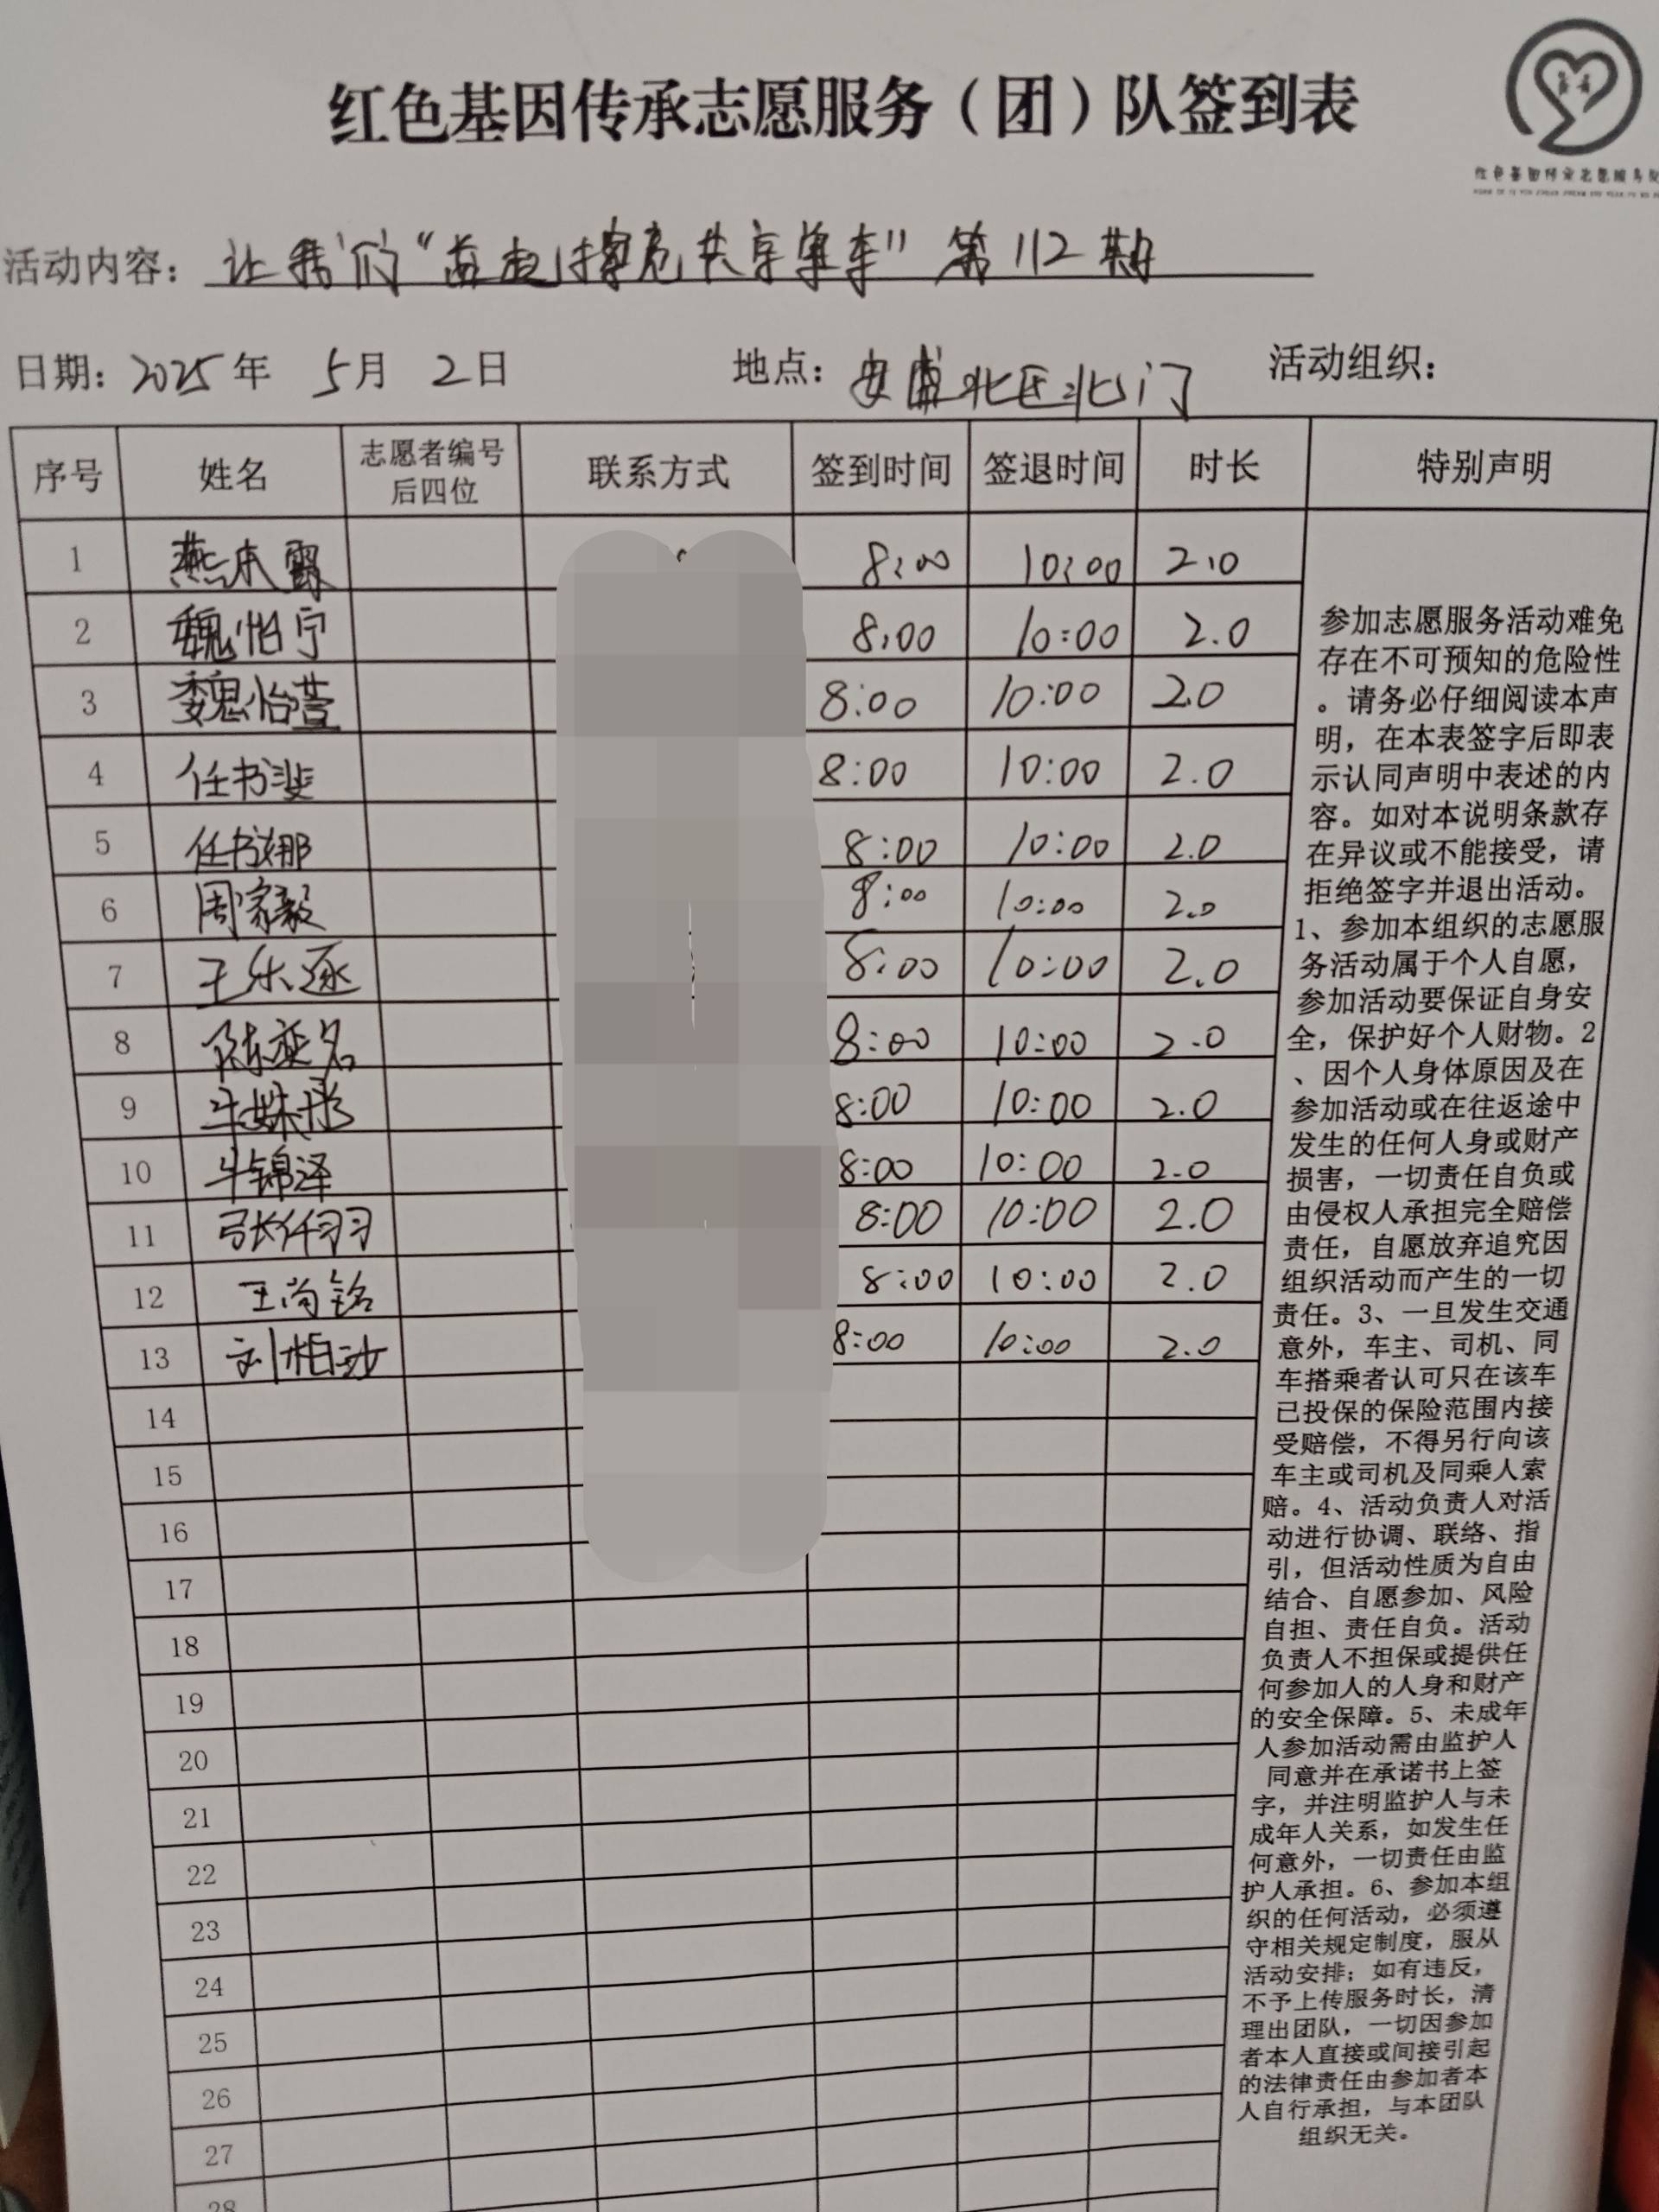 红色基因传承志愿服务（团）队签到表
红色基因传承志愿服务队
活动内容：让我们“益起擦亮共享单车”第112期
日期：2025年 5月 2日 地点：安盛北区北门 活动组织：
序号 姓名 志愿者编号后四位 联系方式 签到时间 签退时间 时长 特别声明
1 燕本霖 8:00 10:00 2.0
2 魏怡宁 8:00 10:00 2.0
3 魏怡萱 8:00 10:00 2.0
4 任书斐 8:00 10:00 2.0
5 任书娜 8:00 10:00 2.0
6 周家毅 8:00 10:00 2.0
7 王乐逐 8:00 10:00 2.0
8 陈延名 8:00 10:00 2.0
9 牛姝彤 8:00 10:00 2.0
10 牛锦泽 8:00 10:00 2.0
11 张仟羽 8:00 10:00 2.0
12 王尚铭 8:00 10:00 2.0
13 刘柏 8:00 10:00 2.0
14
15
16
17
18
19
20
21
22
23
24
25
26
27
28
参加志愿服务活动难免
存在不可预知的危险性
。请务必仔细阅读本声
明，在本表签字后即表
示认同声明中表述的内
容。如对本说明条款存
在异议或不能接受，请
拒绝签字并退出活动。
1、参加本组织的志愿服
务活动属于个人自愿，
参加活动要保证自身安
全，保护好个人财物。2
、因个人身体原因及在
参加活动或在往返途中
发生的任何人身或财产
损害，一切责任自负或
由侵权人承担完全赔偿
责任，自愿放弃追究因
组织活动而产生的一切
责任。3、一旦发生交通
意外，车主、司机、同
车搭乘者认可只在该车
已投保的保险范围内接
受赔偿，不得另行向该
车主或司机及同乘人索
赔。4、活动负责人对活
动进行协调、联络、指
引，但活动性质为自由
结合、自愿参加、风险
自担、责任自负。活动
负责人不担保或提供任
何参加人的人身和财产
的安全保障。5、未成年
人参加活动需由监护人
同意并在承诺书上签
字，并注明监护人与未
成年人关系，如发生任
何意外，一切责任由监
护人承担。6、参加本组
织的任何活动，必须遵
守相关规定制度，服从
活动安排；如有违反，
不予上传服务时长，清
理出团队，一切因参加
者本人直接或间接引起
的法律责任由参加者本
人自行承担，与本团队
组织无关。